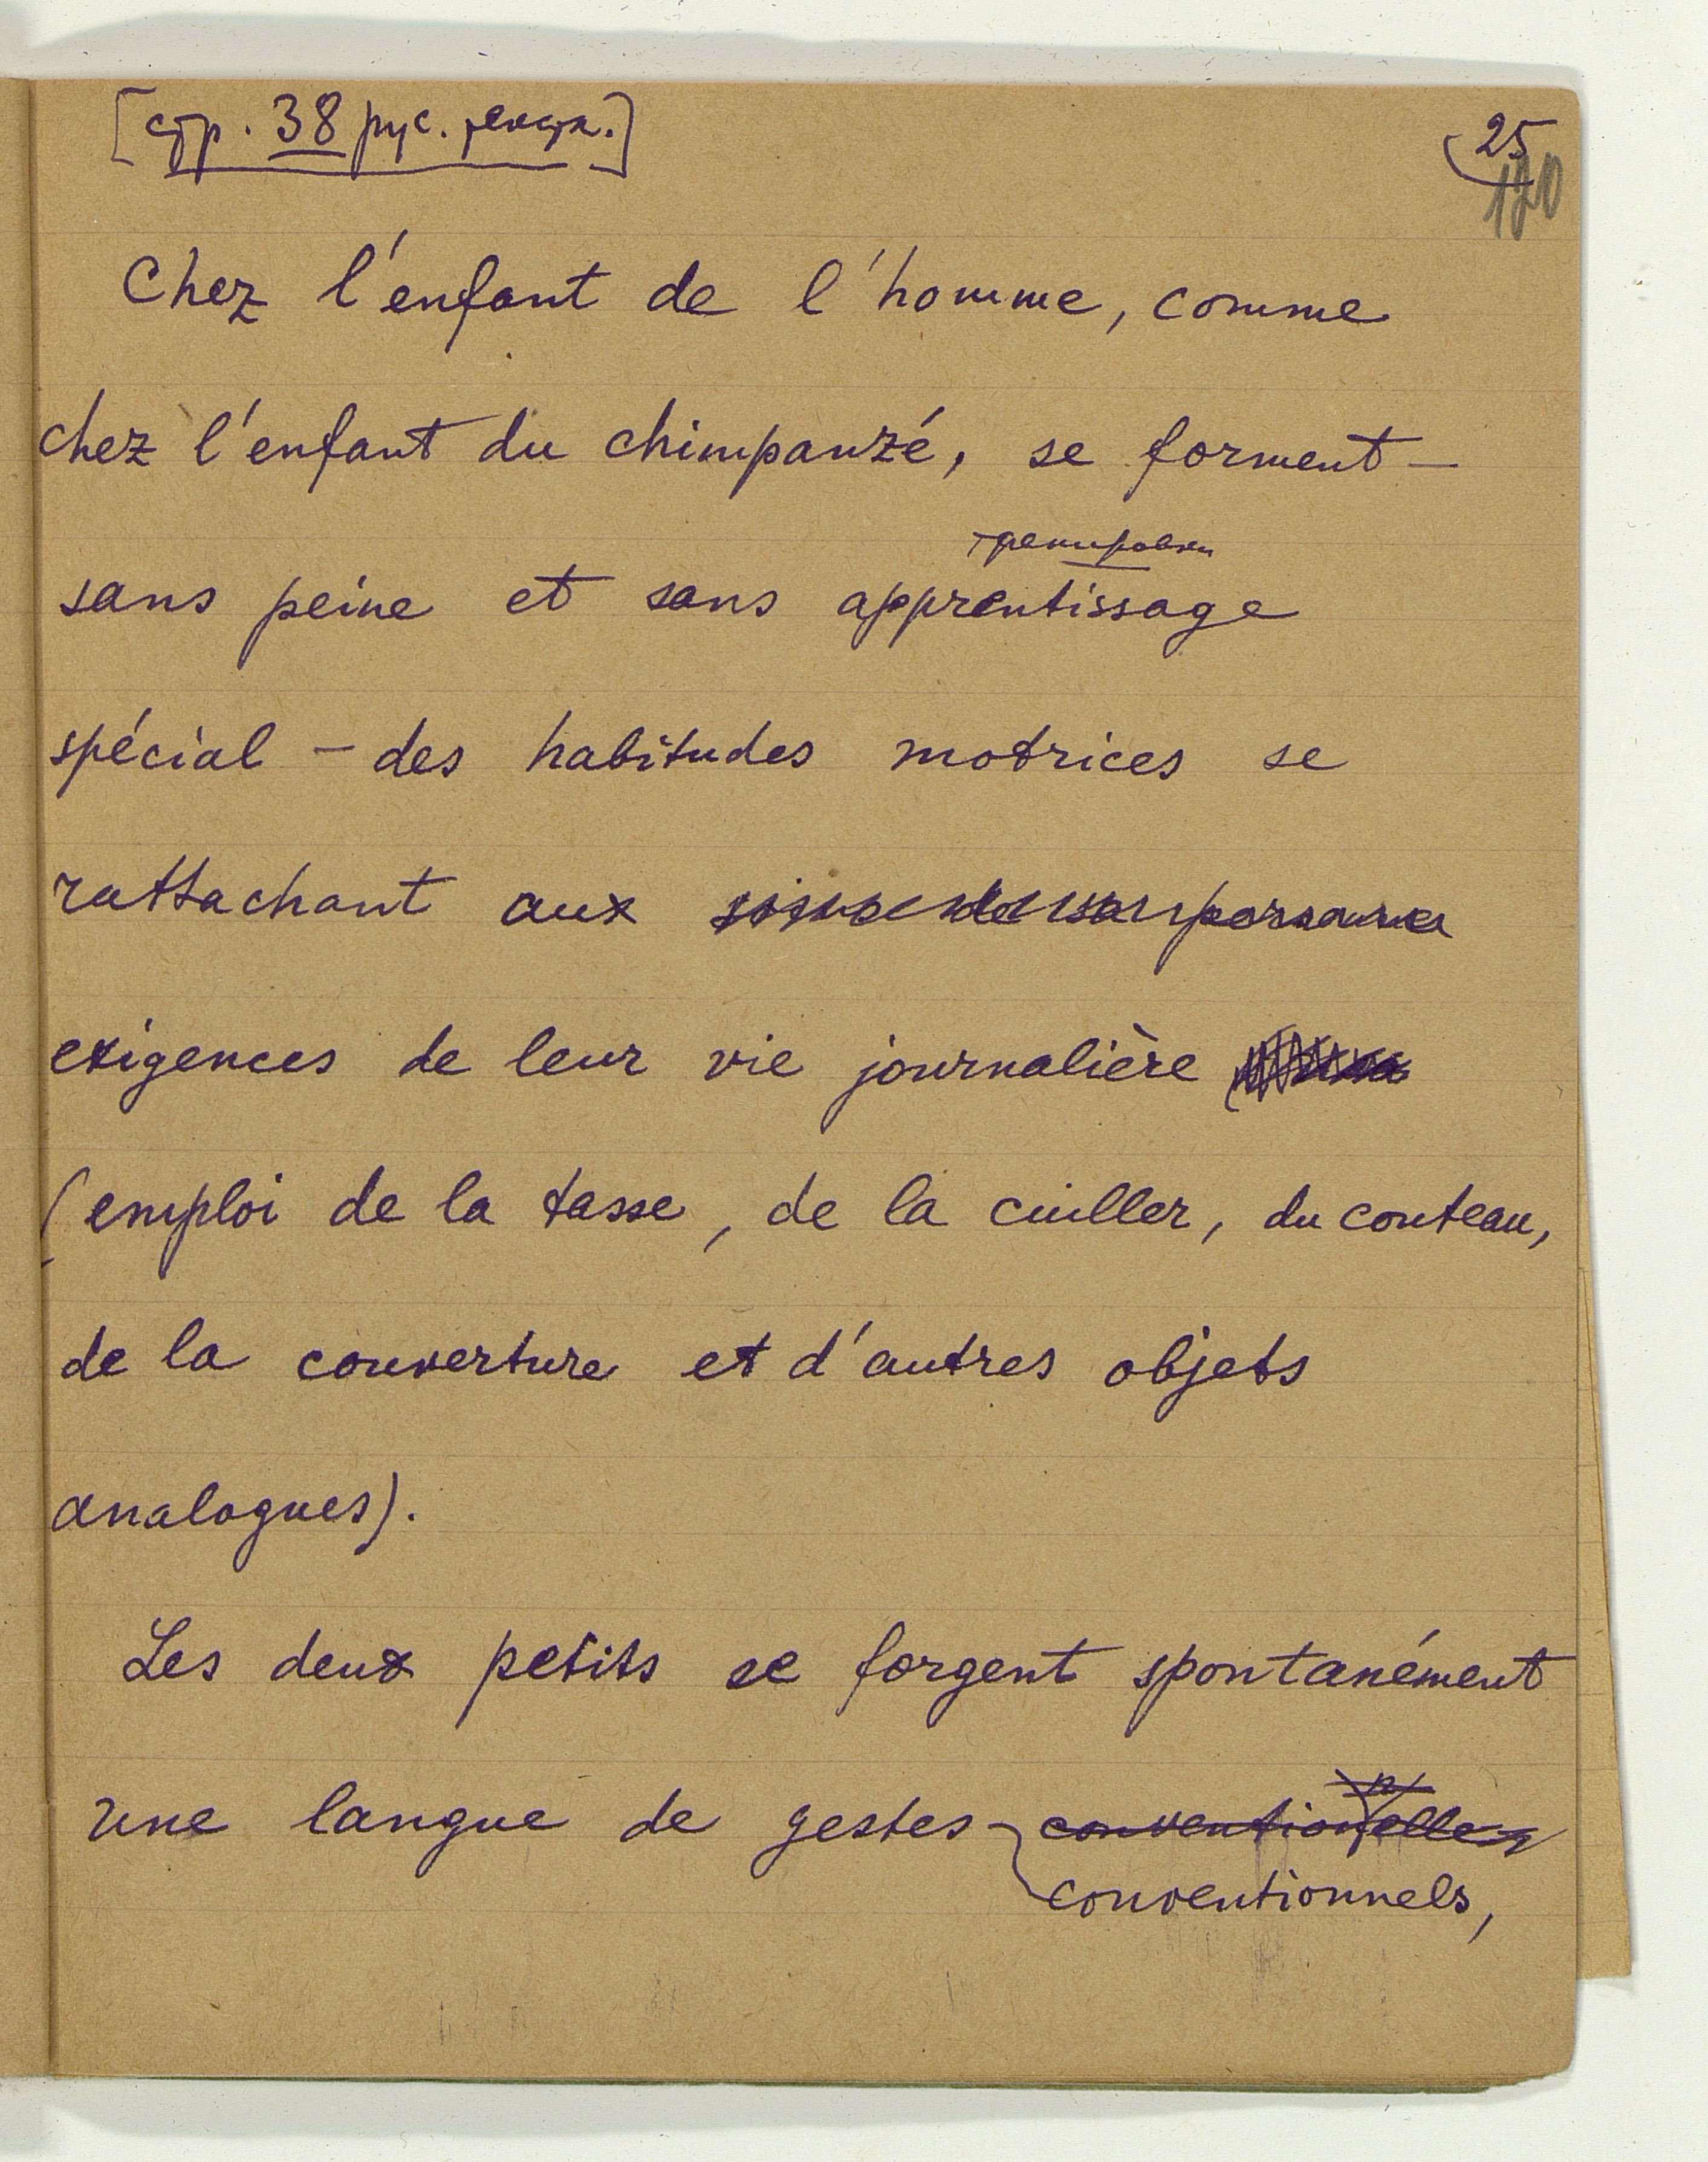 [стр. 38 рус. текста.]
25
120
Chez l'enfant de l'homme, comme
chez l'enfant du chimpanzé, se forment –
тренировки
sans peine et sans apprentissage
spécial – des habitudes motrices se
rattachant aux
exigences de leur vie journalière
(emploi de la tasse, de la cuiller, du couteau,
de la couverture et d'autres objets
analogues).
Les deux petits se forgent spontanément
une langue de gestes conventionnelles
conventionnels,